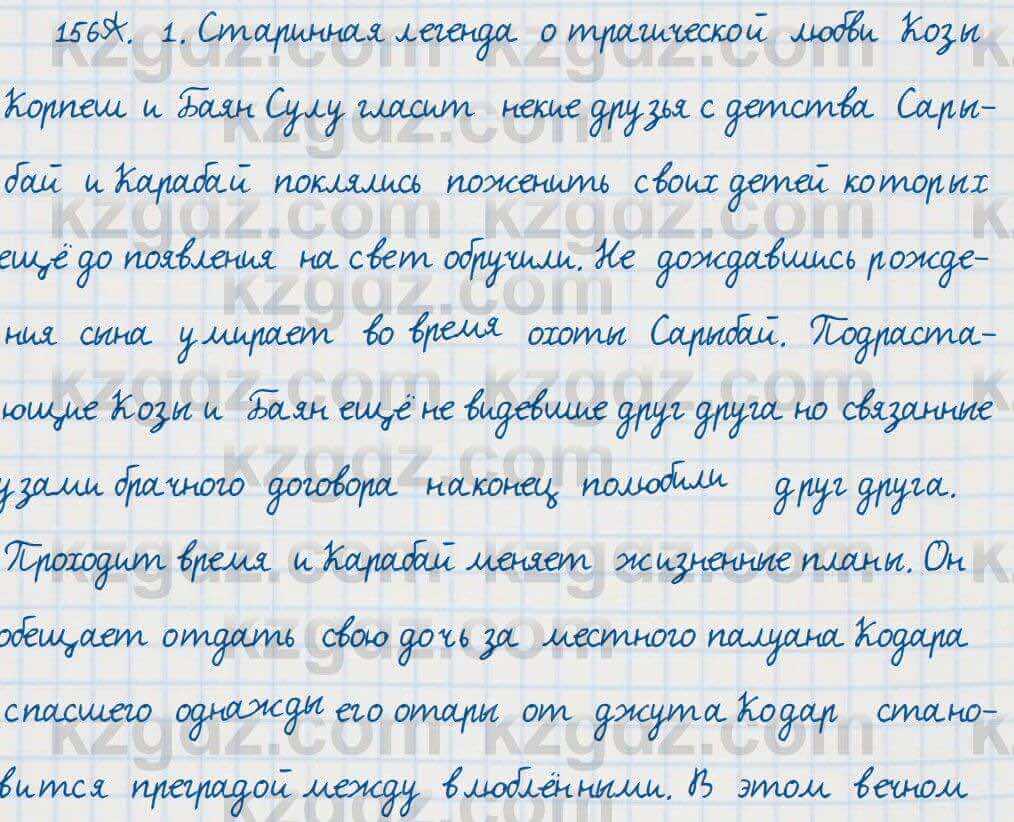 156А. 1. Старинная легенда о трагической любви Козы
Корпеш и Баян Сулу гласит некие друзья с детства Сары-
бай и Карабай поклялись поженить своих детей которых
ещё до появления на свет обручили. Не дождавшись рожде-
ния сына умирает во время охоты Сарыбай. Подраста-
ющие Козы и Баян ещё не видевшие друг друга но связанные
узами брачного договора наконец полюбили друг друга.
Проходит время и Карабай меняет жизненные планы. Он
обещает отдать свою дочь за местного палуана Кодара
спасшего однажды его отары от джута Кодар стано-
вится преградой между влюблёнными. В этом вечном